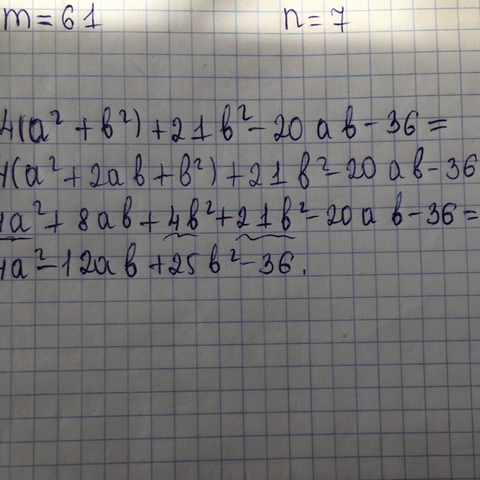 m=61 n=7
4(a²+b²)+21b²-20ab-36=
4(a²+2ab+b²)+21b²-20ab-36
4a²+8ab+4b²+21b²-20ab-36=
4a²-12ab+25b²-36.